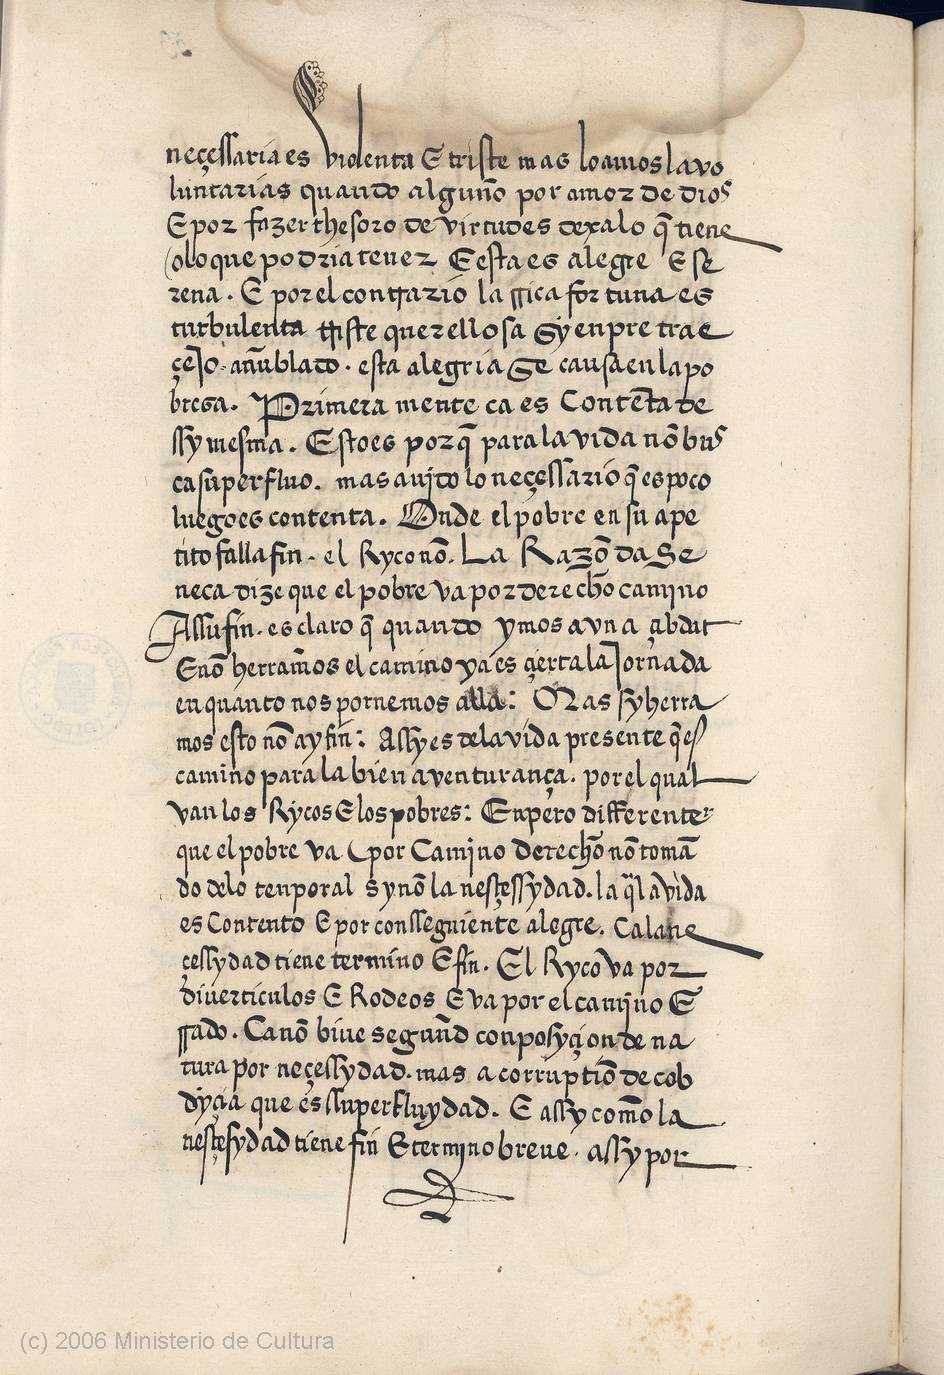 neçessaria es violenta E triste mas loamos la vo
luntarias quando alguño por amor de dios
E por fazer thesoro de virtudes dexa lo q̃ tiene
o lo que podria tener E esta es alegre E se
rena. E por el contrario la rrica fortuna es
turbulenta triste querellosa Syenpre trae
çeJo añublado. esta alegria Se causa en la po
breza. Primera mente ca es Contẽta de
ssy mesma. Esto es por q̃ para la vida nõ bus
ca superfluo. mas auido lo neçessario q̃ es poco
luego es contenta. Onde el pobre en su ape
tito falla fin. el Ryco nõ. La Razõ da Se
neca dize que el pobre va por derecho camino
A ssu fin. es claro q̃ quando ymos a vna çbdat
E nõ herramos el camino ya es çierta la Jornada
en quanto nos pornemos alla: Mas sy herra
mos esto nõ ay fin: Assy es de la vida presente q̃ es
camino para la bien aventurança. por el qual
van los Rycos E los pobres: Enpero differente
que el pobre va por Camino derecho nõ tomã
do de lo tenporal Synõ la nesçessydad. la q̃l a vida
es Contento E por consseguiente alegre. Ca la ne
çessydad tiene termino E fin. El Ryco va por
diuerticulos E Rodeos E va por el camino E
rrado. Ca nõ biue segund conposyçion de na
tura por neçessydad. mas a corruptiõ de cob
dyçia que es ssuperfluydad. E assy como la
nesçesydad tiene fin E termino breue. assy por